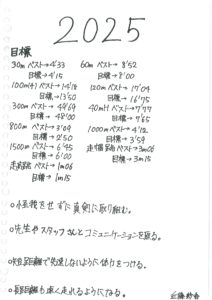 2025
目標
30m ベスト→4"33 60m ベスト→8"52
目標→4"15 目標→8"00
100mH ベスト→14"18 120m ベスト→17"04
目標→13"50 目標→16"75
300m ベスト→49"69 40mH ベスト→7"97
目標→48"00 目標→7"65
800m ベスト→3"09 1000m ベスト→4"12
目標→2"50 目標→3"59
1500m ベスト→6"45 走幅跳 ベスト→3m06
目標→6"00 目標→3m15
走高跳 ベスト→1m06
目標→1m15
○怪我をせずに真剣に取り組む。
○先生やスタッフさんとコミュニケーションを取る。
○短距離で失速しないように体力をつける。
○長距離も速く走れるようになる。